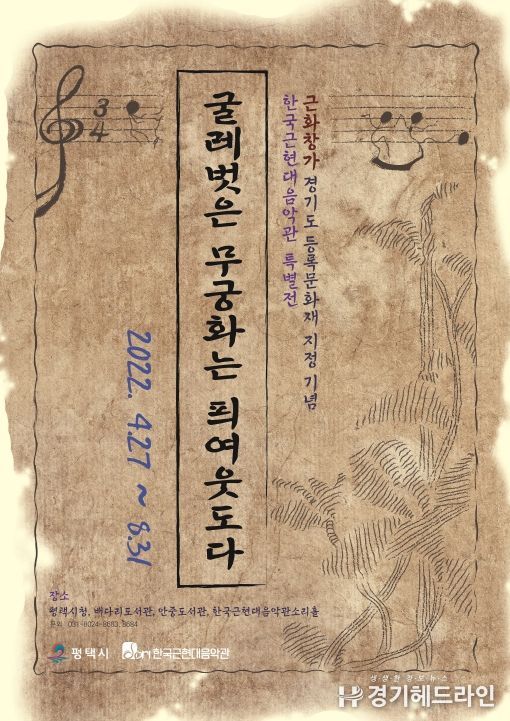 근화창가 경기도 등록문화재 지정 기념
한국근현대음악관 특별전
굴레벗은 무궁화는 픠여웃도다
2022. 4.27 ~ 8.31
3
4
장소
평택시청, 배다리도서관, 안중도서관, 한국근현대음악관소리울
문의 031-8024-8683, 8684
평택시
한국근현대음악관
생·생·한·경·보·뉴·스
경기헤드라인